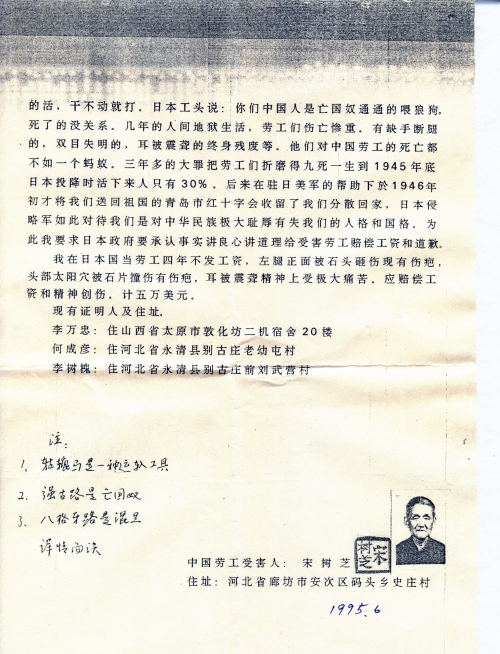 的活，干不动就打。日本工头说：你们中国人是亡国奴通通的喂狼狗，
死了的没关系。几年的人间地狱生活，劳工们伤亡惨重。有缺手断腿
的，双目失明的，耳被震聋的终身残度等。他们对中国劳工的死亡都
不如一个蚂蚁。三年多的大罪把劳工们折磨得九死一生到1945年底
日本投降时活下来人只有30%。后来在驻日美军的帮助下於1946年
初才将我们送回祖国的青岛市红十字会收留了我们分散回家，日本侵
略军如此对待我们是对中华民族极大耻辱有失我们的人格和国格。为
此我要求日本政府要承认事实讲良心讲道理给受害劳工赔偿工资和道歉。
我在日本国当劳工四年不发工资，左腿正面被石头砸伤现有伤疤，
头部太阳穴被石片撞伤有伤疤，耳被震聋精神上受极大痛苦。应赔偿工
资和精神创伤。计五万美元。
现有证明人及住址.
李万忠：住山西省太原市敦化坊二机宿舍20楼
何成彦：住河北省永清县别古庄老幼屯村
李树槐：住河北省永清县别古庄前刘武营村
注：
1、轱辘马是一种运轮工具
2、强古路是亡国奴
3、八格牙路是混旦
详情面谈
中国劳工受害人：宋树芝
宋树芝
住址：河北省廊坊市安次区码头乡史庄村
1995.6